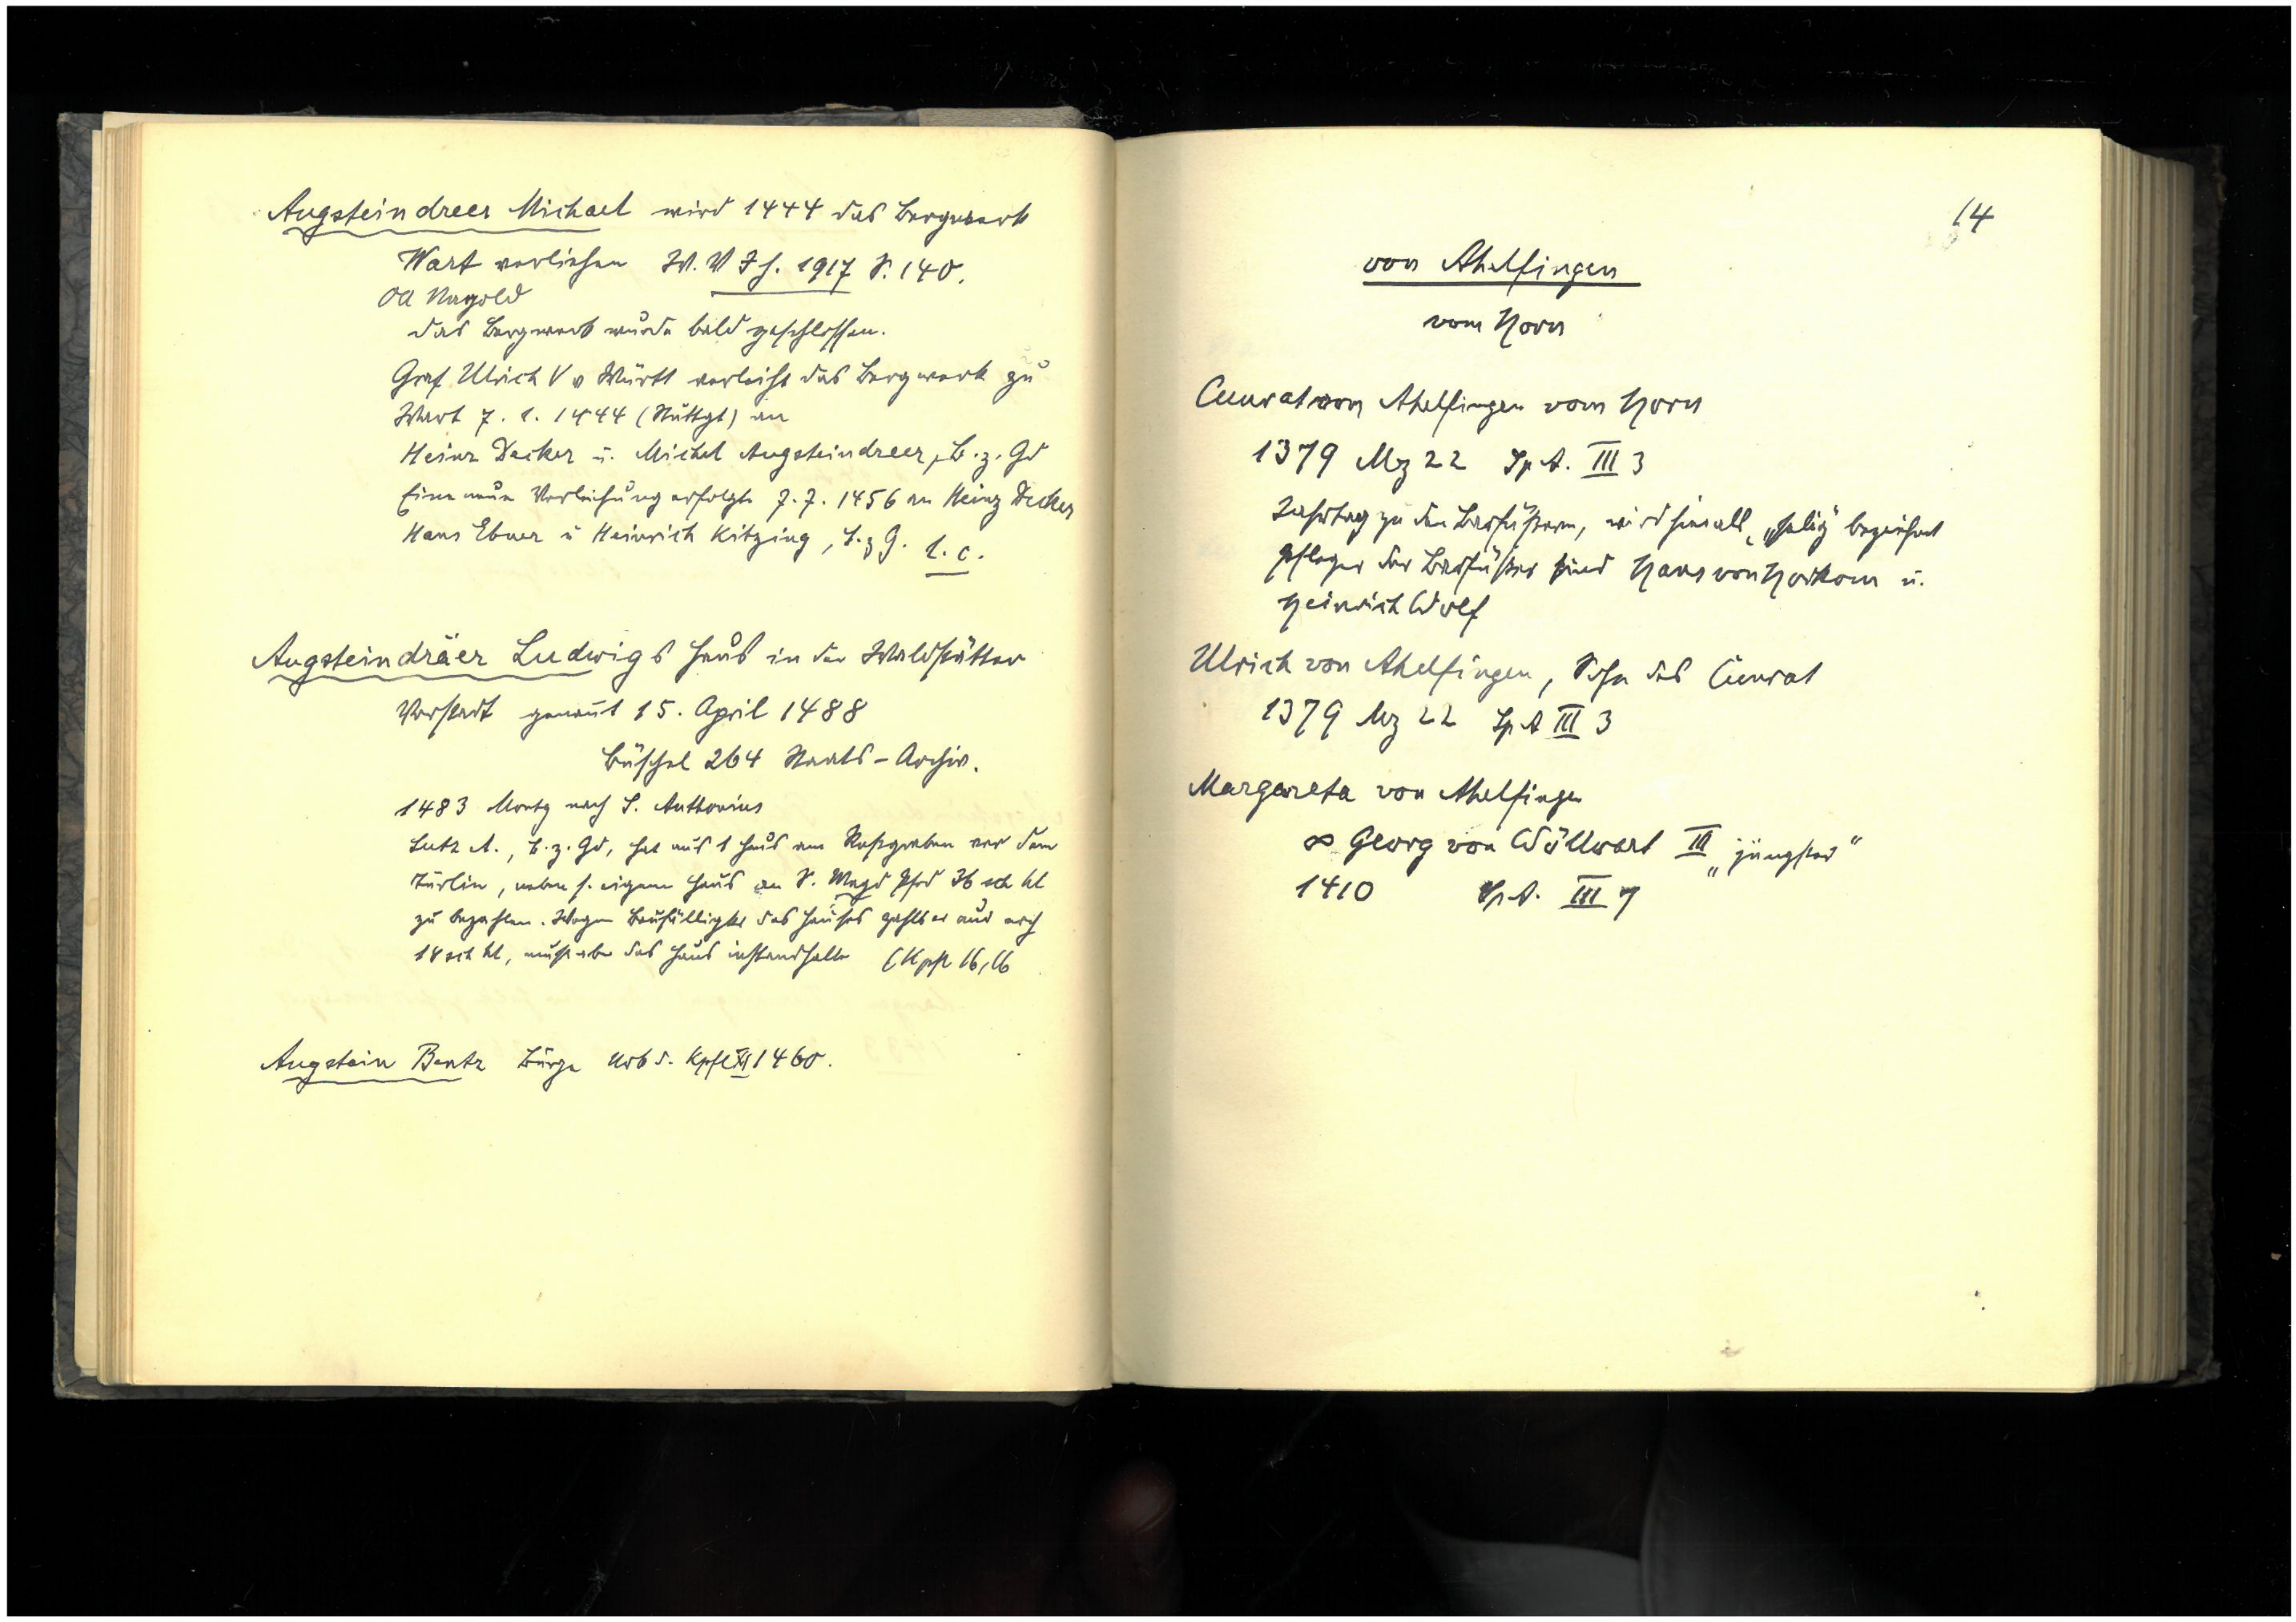 Augsteindreer Michael wird 1444 das Bergwerk
Wart verliehen W. V Jh. 1917 S. 140.
OA Nagold
das Bergwerk wurde bald geschlossen.
Graf Ulrich V v Württ verleiht das Bergwerk zu
Wart 7. 1. 1444 (Stuttgt) an
Heinz Decker u. Michel Augsteindreer, B. z. Gd
Eine neue Verleihung erfolgte 7. 7. 1456 an Heinz Decker
Hans Ebner u Heinrich Kitzing, B. z G. l. c.
Augsteindräer Ludwigs Haus in der Waldstätter
Vorstadt genannt 15. April 1488
Büschel 264 Staats-Archiv.
1483 Montg nach S. Anthonius
Lutz A., B. z. Gd, hat aus 1 Haus am Roßgraben vor dem
Türlin, neben s. eigenen Haus an S. Magd Pfrd 36 sch hl
zu bezahlen. Wegen Baufälligkt des Hauses zahlt er nur noch
18 sch hl, muß aber das Haus instandhalten (Kpfl 16,16
Augstein Bentz Bürge Urb d. Kpfl XI 1460.
14
von Ahelfingen
vom Horn
Cunrat von Ahelfingen vom Horn
1379 Mz 22 Sp A. III 3
Jahrtag zu den Barfüßern, wird hier als „selig" bezeichnet
Pfleger der Barfüßer sind Hans von Horkom u.
Heinrich Wolf
Ulrich von Ahelfingen, Sohn des Cunrat
1379 Mz 22 Sp A III 3
Margareta von Ahelfingen
∞ Georg von Wöllwart III „jüngster"
1410 Sp A. III 7